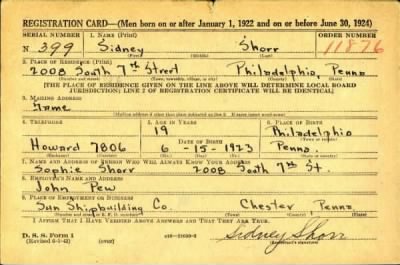 REGISTRATION CARD—(Men born on or after January 1, 1922 and on or before June 30, 1924)
SERIAL NUMBER 1. NAME (Print) ORDER NUMBER
N 399 Sidney Shorr 11876
(First) (Middle) (Last)
2. PLACE OF RESIDENCE (Print)
2008 South 7th Street Philadelphia, Penna
(Number and street) (Town, township, village, or city) (County) (State)
[THE PLACE OF RESIDENCE GIVEN ON THE LINE ABOVE WILL DETERMINE LOCAL BOARD
JURISDICTION; LINE 2 OF REGISTRATION CERTIFICATE WILL BE IDENTICAL]
3. MAILING ADDRESS
Same
[Mailing address if other than place indicated on line 2. If same insert word same]
4. TELEPHONE 5. AGE IN YEARS 6. PLACE OF BIRTH
19 Philadelphia
Howard 7806 DATE OF BIRTH
6-15-1923 Penna.
(Exchange) (Number) (Mo.) (Day) (Yr.) (State or country)
7. NAME AND ADDRESS OF PERSON WHO WILL ALWAYS KNOW YOUR ADDRESS
Sophie Shorr 2008 South 7th St.
8. EMPLOYER'S NAME AND ADDRESS
John Pew
9. PLACE OF EMPLOYMENT OR BUSINESS
Sun Shipbuilding Co. Chester, Penna.
(Number and street or R. F. D. number) (Town) (County) (State)
I AFFIRM THAT I HAVE VERIFIED ABOVE ANSWERS AND THAT THEY ARE TRUE.
D. S. S. Form 1
(Revised 6-1-42) (over) Sidney Shorr
(Registrant's signature)